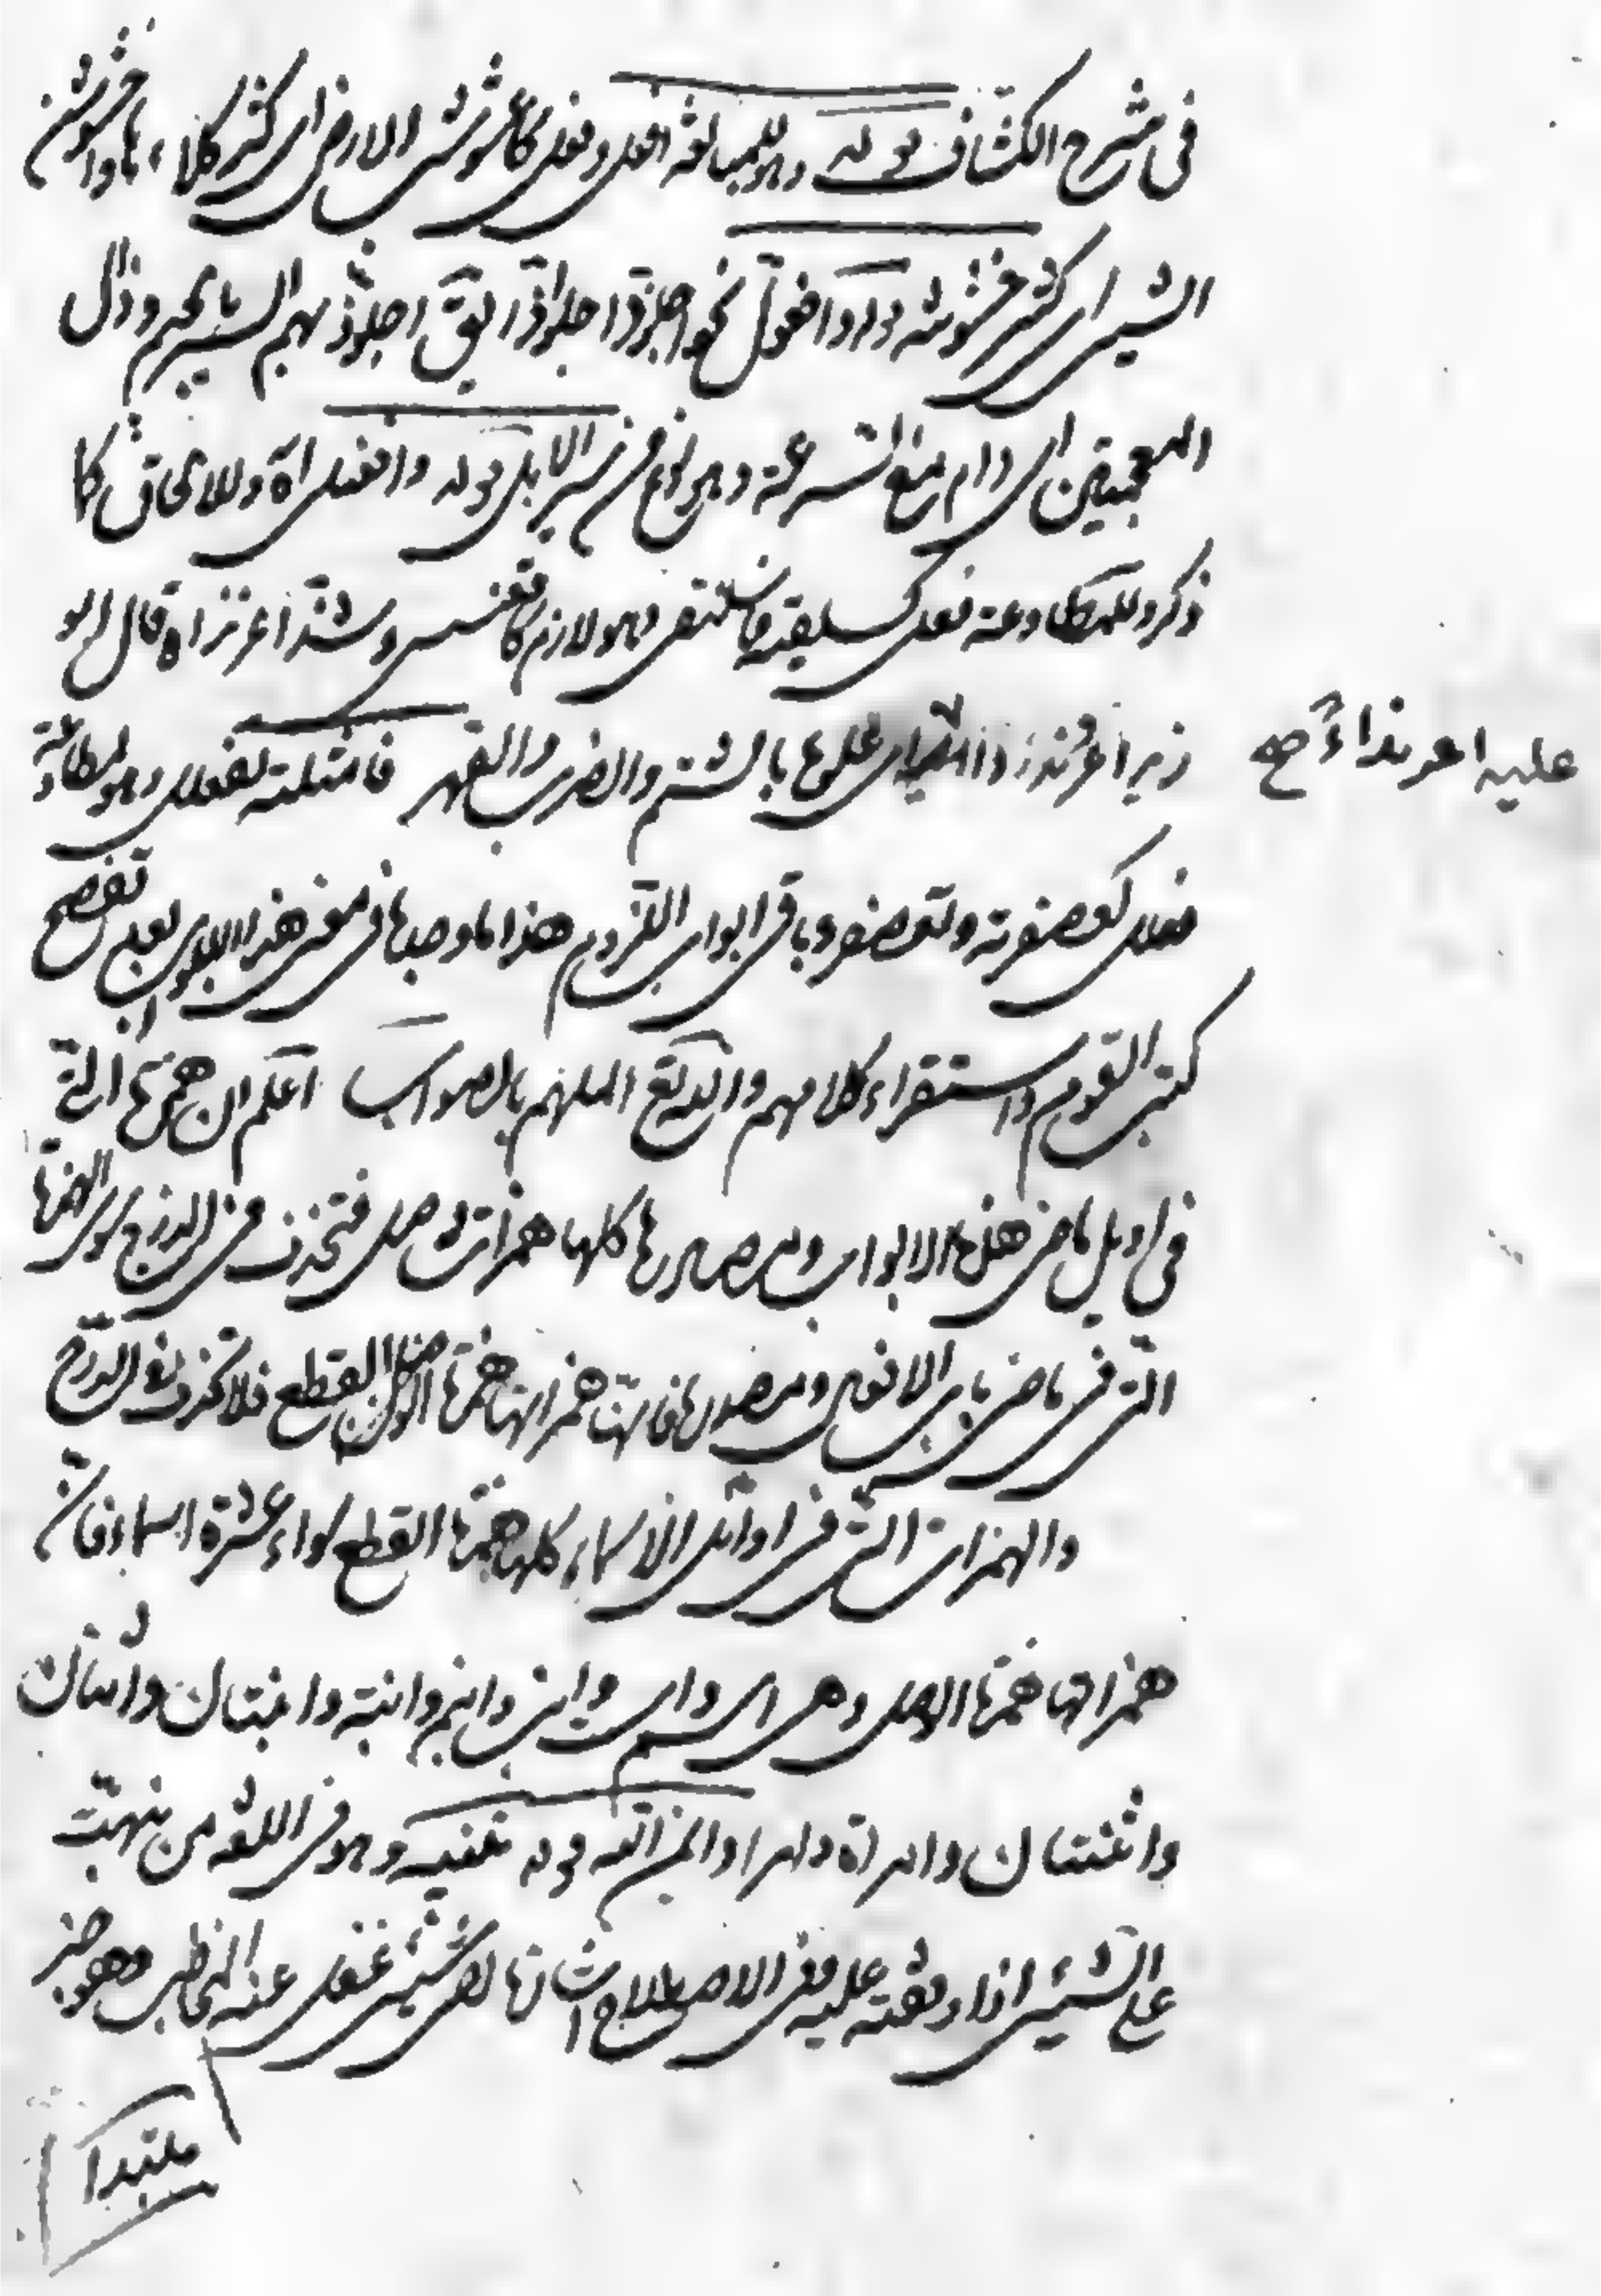 في شرح الكشاف قوله وهو للمبالغة افعل وفعل كاعشوشب الارض اى كثر كلاءها واخشوشن
الشيئ اى كثر خشونته قوله وافعول نحو اجلوذ اجلواذا يق اجلوذ بهم السير بالجيم وذال
المعجمتين اى دام مع السرعة وهو نوع من سير الابل قوله وافعنلل اه وللالحاق كا
ذكر وللمطاوعة فعلى كسلقيته فاسلنقى وهو لازم كاقعنسس وشذ اغرنداه قال ابو
زيد اغرندوا اى علوها بالشتم والضرب والقهر فامثلته تفعلل وهو لمطاوعة
عليه اغرنداءً صح
فعلل كعصفرته وتعصفر وباقى ابواب اللزوم هذا ما وجدنا فى معنى هذه الابواب بعد تفصح
كتب القوم واستقراء كلامهم والله الملهم بالصواب اعلم ان همزتها التى
فى اوايل ماضى هذه الابواب ومصادرها كلها همزات وصل فتحذف فى الدرج سوى الهمزة
التى فى ماضى باب الافعال ومصدرها فانها همزاتها همزة القطع فلا تحذف فى الدرج
والهمزات التى فى اوائل الاسماء كلها همزة القطع سواء عشرة اسماء فان
همزاتها همزة الوصل وهى اسم واست وابن وابنم وابنة وابنتان واثنان
واثنتان وامراة وامرا وايمن الله قوله تنبيه وهو فى اللغة من نبهت
على الشيئ اذا وقفته عليه وفى الاصطلاح اشارتها الى شيئ غفل عنه المخاطب وهو خبر
مبتدا